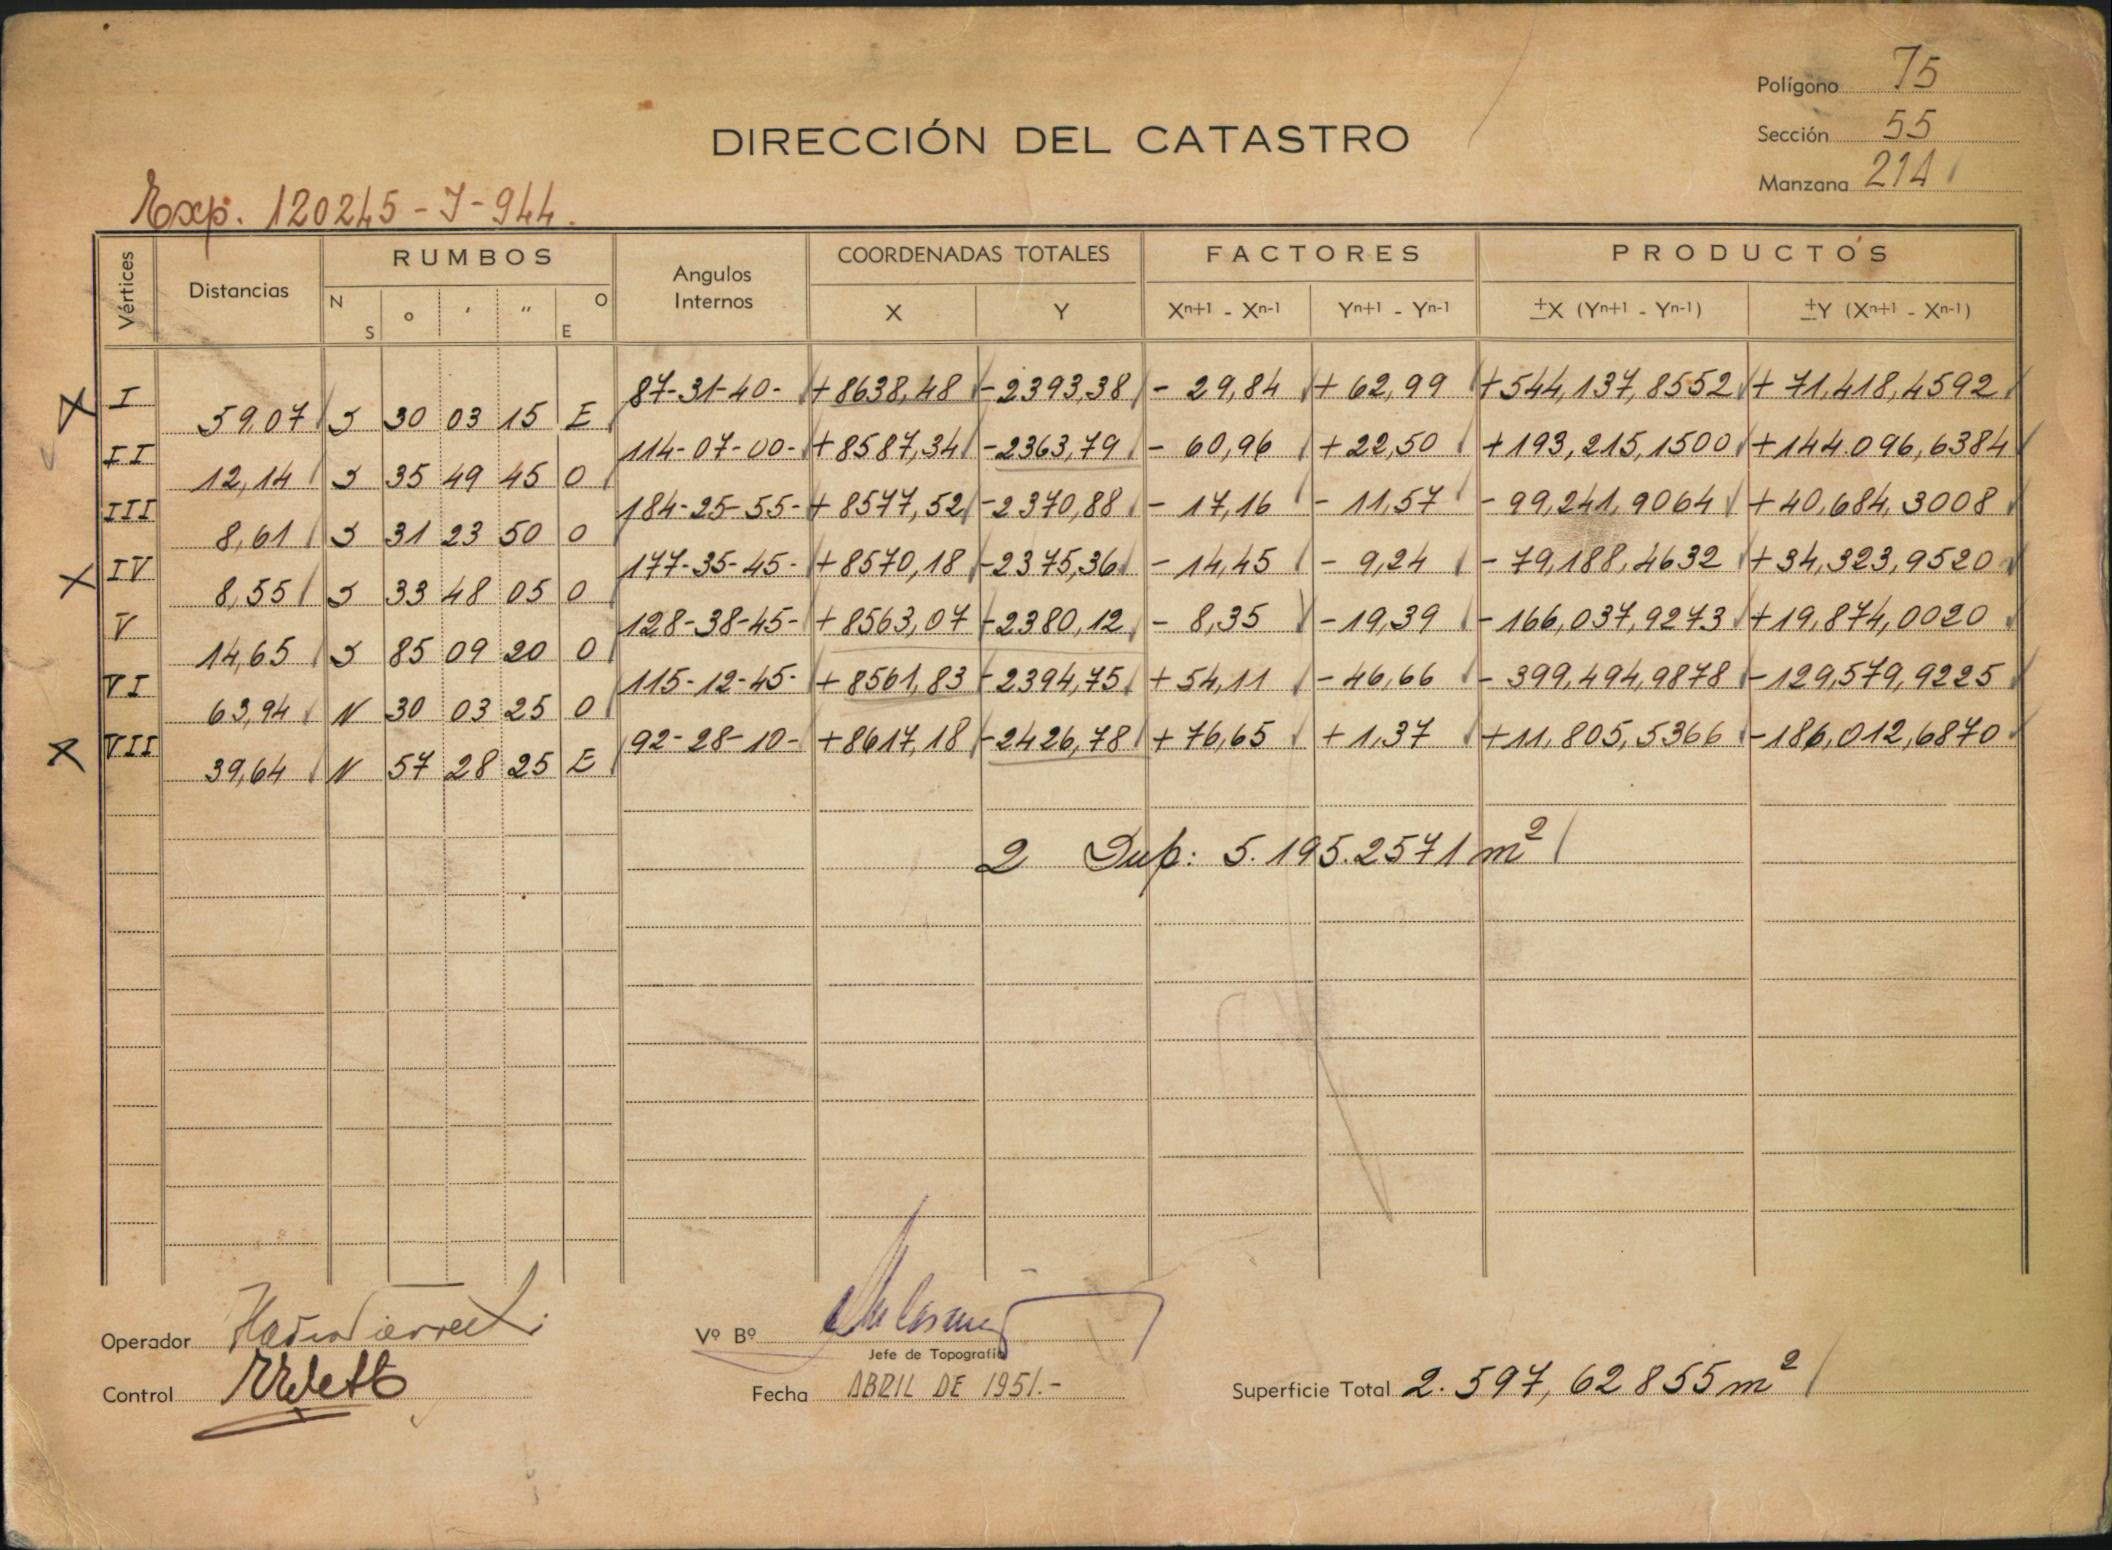 Polígono 75
Sección 55
DIRECCIÓN DEL CATASTRO
Manzana 214
Exp. 120245-J-944.
Vértices Distancias RUMBOS Angulos Internos COORDENADAS TOTALES FACTORES PRODUCTOS
N S o ' " O E X Y Xn+1 - Xn-1 Yn+1 - Yn-1 ±X (Yn+1 - Yn-1) ±Y (Xn+1 - Xn-1)
I 87-31-40- +8638,48 -2393,38 - 29,84 + 62,99 +544,137,8552 + 71,418,4592
59,07 S 30 03 15 E
II 114-07-00- +8587,34 -2363,79 - 60,96 +22,50 +193,215,1500 +144.096,6384
12,14 S 35 49 45 O
III 184-25-55- +8577,52 -2370,88 - 17,16 - 11,57 - 99,241,9064 +40,684,3008
8,61 S 31 23 50 O
IV 177-35-45- +8570,18 -2375,36 - 14,45 - 9,24 - 79,188,4632 +34,323,9520
8,55 S 33 48 05 O
V 128-38-45- +8563,07 -2380,12 - 8,35 -19,39 -166,037,9273 +19,874,0020
14,65 S 85 09 20 O
VI 115-12-45- +8561,83 -2394,75 +54,11 -46,66 - 399,494,9878 -129,579,9225
63,94 N 30 03 25 O
VII 92-28-10- +8617,18 -2426,78 +76,65 +1,37 +11,805,5366 -186,012,6870
39,64 N 57 28 25 E
2 Sup: 5.195.2571 m²
Operador
Vº Bº
Jefe de Topografía
Control
Fecha ABRIL DE 1951.-
Superficie Total 2.597,62855 m²